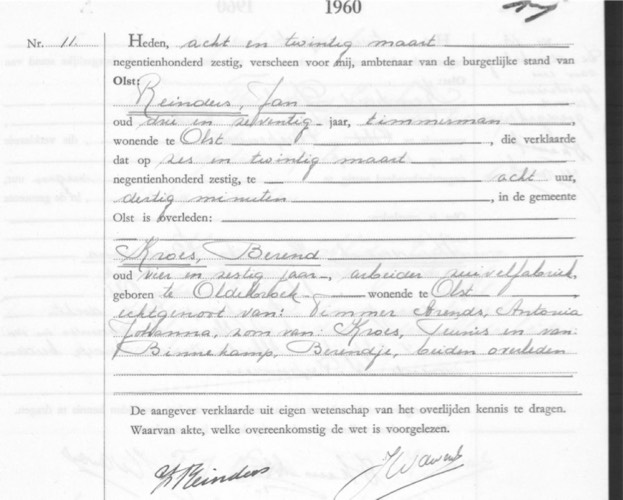 1960
Nr. 11. Heden, acht en twintig maart
negentienhonderd zestig, verscheen voor mij, ambtenaar van de burgerlijke stand van
Olst:
Reinders, Jan
oud drie en zeventig jaar, timmerman,
wonende te Olst, die verklaarde
dat op zes en twintig maart
negentienhonderd zestig, te acht uur,
dertig minuten, in de gemeente
Olst is overleden:
Kroes, Berend
oud vier en zestig jaar, arbeider zuivelfabriek,
geboren te Oldebroek, wonende te Olst,
echtgenoot van: Timmer Arends, Antonia
Johanna, zoon van: Kroes, Teunis en van
Binnekamp, Berendje, beiden overleden
De aangever verklaarde uit eigen wetenschap van het overlijden kennis te dragen.
Waarvan akte, welke overeenkomstig de wet is voorgelezen.
Reinders